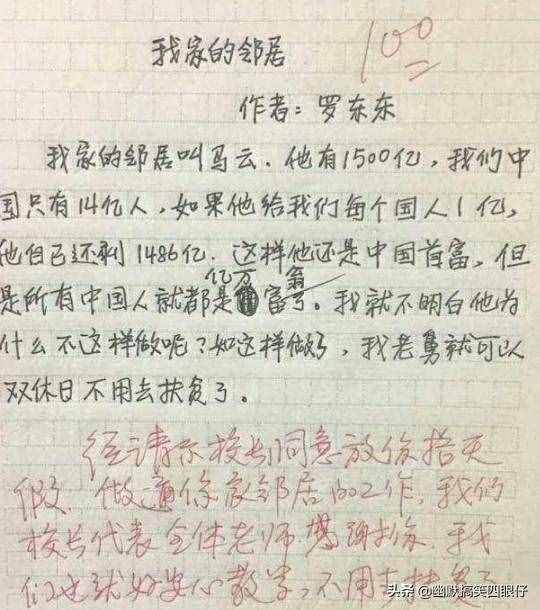 我家的邻居
100
作者：罗东东
我家的邻居叫马云．他有1500亿，我们中
国只有14亿人，如果他给我们每个国人1亿，
他自己还剩1486亿．这样他还是中国首富，但
是所有中国人就都是亿万富翁了。我就不明白他为
什么不这样做呢？如这样做了，我老舅就可以
双休日不用去扶贫了。
经请示校长同意放你揩天
假，做通你家邻居的工作，我们
校长代表全体老师感谢你．我
们也就好安心教学，不用去扶贫了
头条@幽默搞笑四眼仔